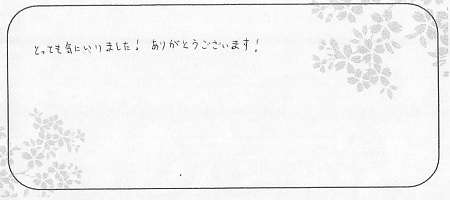 とっても気にいりました! ありがとうございます!